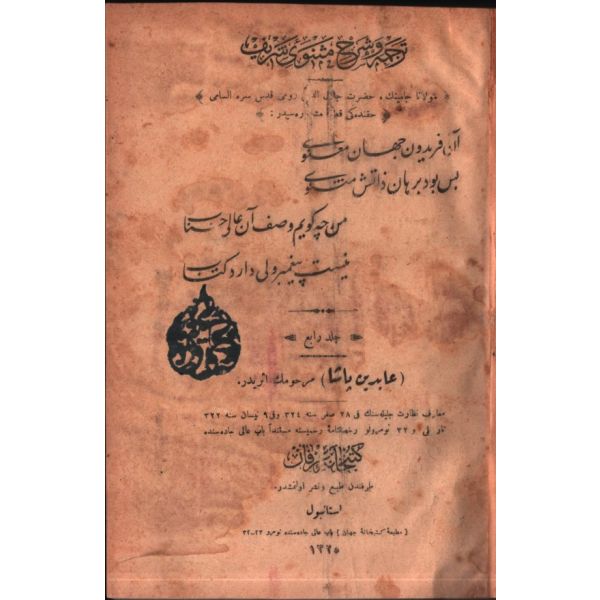 ترجمه و شرح مثنوی شریف
﴿ مولانا جامینك ، حضرت جلال الد رومی قدس سره السامی ﴾
﴿ حقنده کی قطعه مشهوره سیدر : ﴾
آن فریدون جهان معنوی
بس بود برهان ذاتش مثنوی
من چه کویم وصف آن عالی جناب
نیست پیغمبر ولی دارد کتاب
جلد رابع
( عابدین پاشا ) مرحومك اثریدر.
معارف نظارت جلیله سنك فی ٢٨ صفر سنه ٣٢٤ و فی ٩ نیسان سنه ٣٢٢
تاریخلی و ٣٢ نومرولو رخصتنامهٔ رسمیه سنه مستنداً باب عالی جاده سنده
کتبخانه
طرفندن طبع و نشر اولنمشدر.
استانبول
( مطبعهٔ کتبخانهٔ جهان ) باب عالی جاده سنده نومرو ٢٣-٣٢